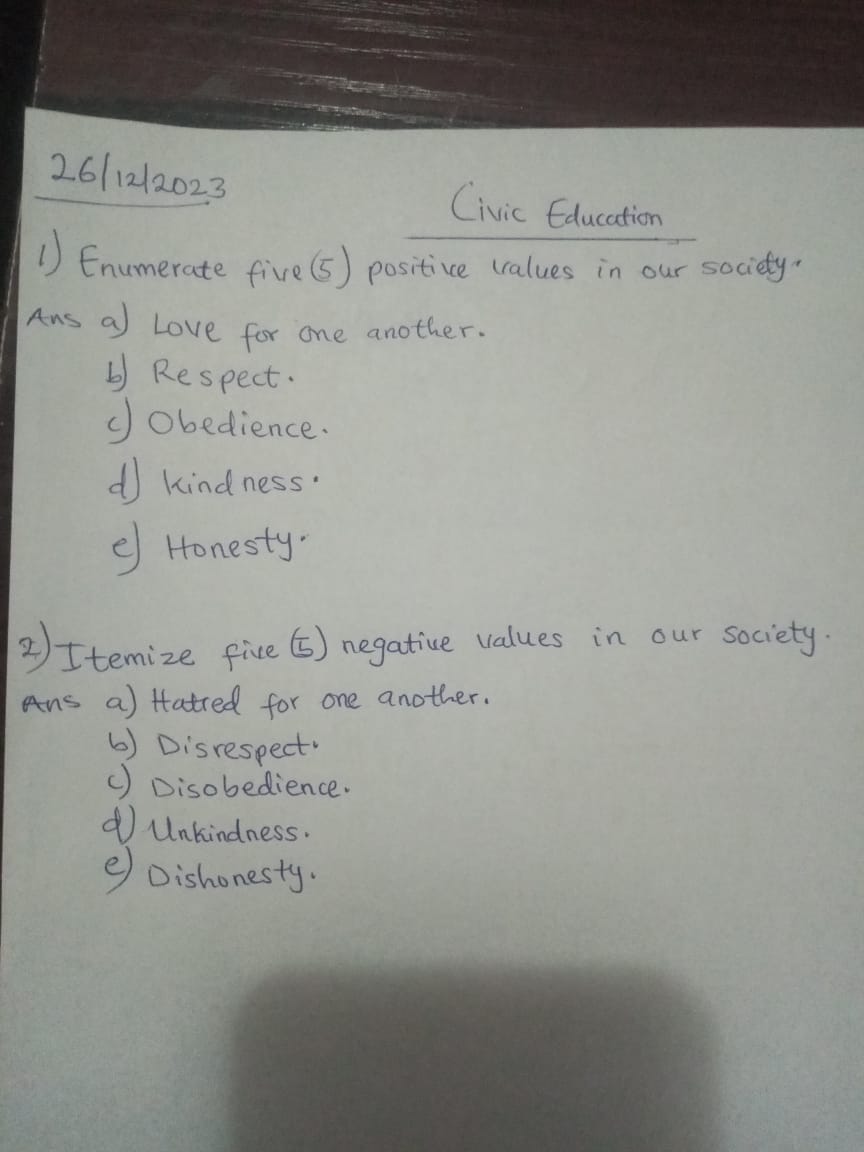 26/12/2023
Civic Education
1) Enumerate five (5) positive values in our society.
Ans a) Love for one another.
b) Respect.
c) Obedience.
d) kindness.
e) Honesty.
2) Itemize five (5) negative values in our society.
Ans a) Hatred for one another.
b) Disrespect.
c) Disobedience.
d) Unkindness.
e) Dishonesty.